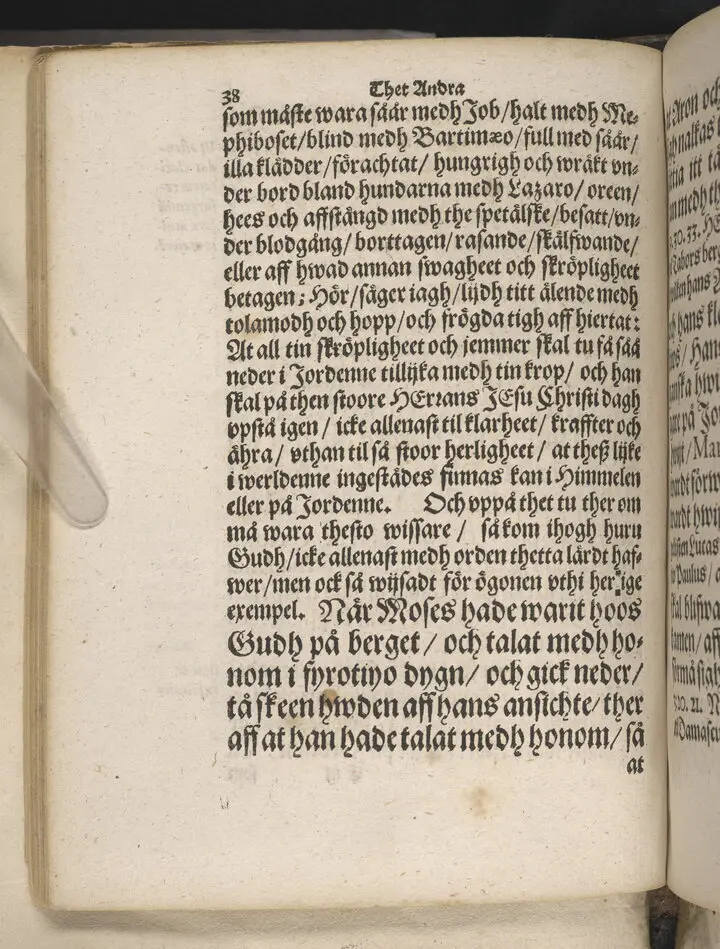 38 Thet Andra
som måste wara såår medh Job/halt medh Me⸗
phiboset/blind medh Bartimæo/full med såår/
illa klädder/förachtat/ hungrigh och wräkt vn⸗
der bord bland hundarna medh Lazaro/ oreen/
hees och affstängd medh the spetälske/besatt/vn⸗
der blodgång/ borttagen/rasande/skälfwande/
eller aff hwad annan swagheet och skröpligheet
betagen; Hör/säger iagh/lijdh titt älende medh
tolamodh och hopp/och frögda tigh aff hiertat:
At all tin skröpligheet och jemmer skal tu få såå
neder i Jordenne tillijka medh tin krop/ och han
skal på then stoore HErrans JEsu Christi dagh
vpstå igen / icke allenast til klarheet/ kraffter och
ähra/ vthan til så stoor herligheet/ at theß lijke
i werldenne ingestädes finnas kan i Himmelen
eller på Jordenne. Och vppå thet tu ther om
må wara thesto wissare / så kom ihogh huru
Gudh/icke allenast medh orden thetta lärdt haf⸗
wer/men ock så wijsadt för ögonen vthi herlige
exempel. När Moses hade warit hoos
Gudh på berget/ och talat medh ho⸗
nom i fyrotiyo dygn/ och gick neder/
tå skeen hwden aff hans ansichte/ ther
aff at han hade talat medh honom/ så
at